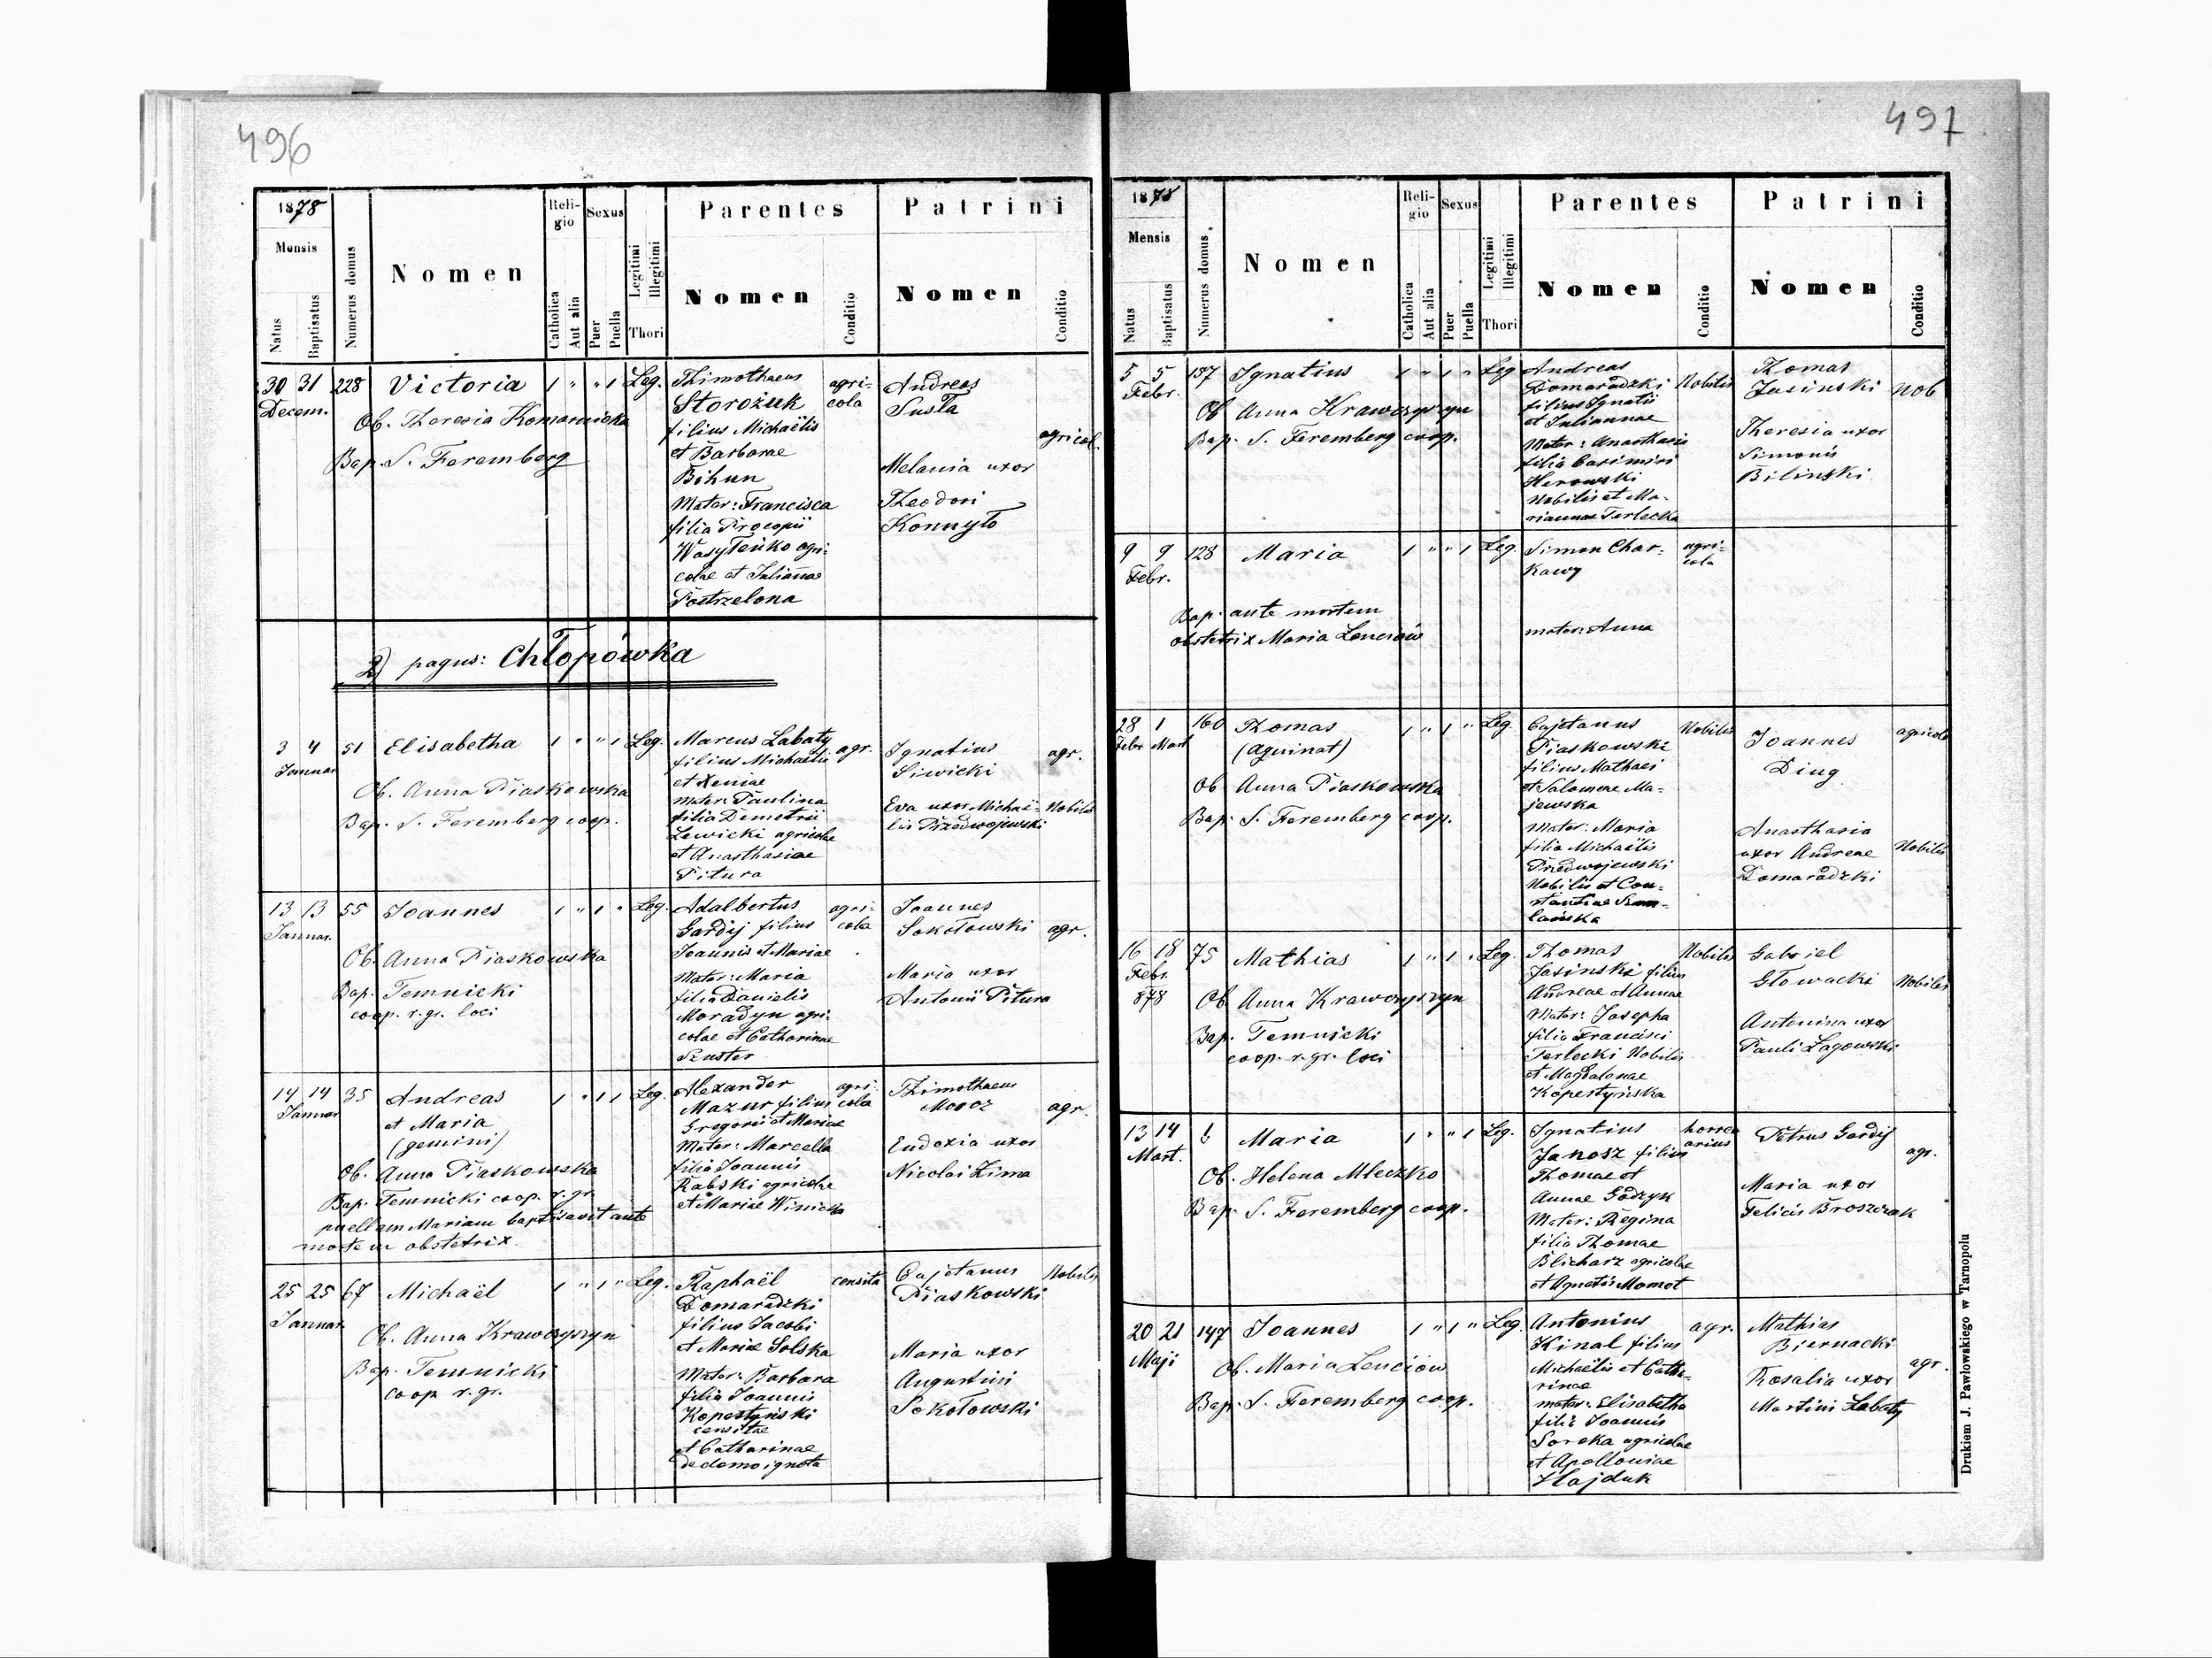 496
1878
Mensis
Natus
Baptisatus
Numerus domus
Nomen
Religio
Catholica
Aut alia
Sexus
Puer
Puella
Legitimi
Illegitimi
Thori
Parentes
Nomen
Conditio
Patrini
Nomen
Conditio
30 31 228 Victoria 1 " " 1 Leg.
Decem.
Ob. Theresia Komarnicka
Bap. S. Feremberg
Thimothaeus
Storożuk
filius Michaëlis
et Barbarae
Bihun
Mater: Francisca
filia Procopii
Wasyleńko agri-
colae et Julianae
Postrzelona
agri-
cola
Andreas
Susła
Melania uxor
Theodori
Konnyło
agricol.
2) pagus: Chłopówka
3 4 51 Elisabetha 1 " " 1 Leg.
Januar
Ob. Anna Piaskowska
Bap. S. Feremberg coop.
Marcus Labaty
filius Michaëlis
et Xeniae
Mater: Paulina
filia Demetrii
Lewicki agricolae
et Anasthasiae
Pitura
agr.
Ignatius
Siwicki
Eva uxor Michaë-
lis Przedwojewski
agr.
Nobilis
13 13 55 Joannes 1 " 1 " Leg.
Januar.
Ob. Anna Piaskowska
Bap. Temnicki
coop. r. gr. loci
Adalbertus
Gardij filius
Joannis et Mariae
Mater: Maria
filia Danielis
Moradyn agri-
colae et Catharinae
Szuster
agri-
cola
Joannes
Sokołowski
Maria uxor
Antonii Pitura
agr.
14 14 35 Andreas 1 " 1 1 Leg.
Januar
et Maria
(gemini)
Ob. Anna Piaskowska
Bap. Temnicki coop. r. gr.
puellam Mariam baptisavit ante
mortem obstetrix
Alexander
Mazur filius
Gregorii et Mariae
Mater: Marcella
filia Joannis
Rabski agricolae
et Mariae Winicka
agri-
cola
Thimothaeus
Moroz
Eudoxia uxor
Nicolai Zima
agr.
25 25 67 Michaël 1 " 1 " Leg.
Januar.
Ob. Anna Krawczyszyn
Bap. Temnicki
coop r. gr.
Raphaël
Domaradzki
filius Jacobi
et Mariae Solska
Mater: Barbara
filia Joannis
Kopestyński
censitae
et Catharinae
de domo ignota
censita
Cajetanus
Piaskowski
Maria uxor
Augustini
Sokołowski
Nobilis
497
1878
Mensis
Natus
Baptisatus
Numerus domus
Nomen
Religio
Catholica
Aut alia
Sexus
Puer
Puella
Legitimi
Illegitimi
Thori
Parentes
Nomen
Conditio
Patrini
Nomen
Conditio
5 5 137 Ignatius 1 " 1 " Leg
Febr.
Ob Anna Krawczyszyn
Bap. S. Feremberg coop.
Andreas
Domaradzki
filius Ignatii
et Juliannae
Mater: Anasthasia
filia Casimiri
Herowski
Nobilis et Ma-
riannae Terlecka
Nobilis
Thomas
Jasinski
Theresia uxor
Simonis
Bilinski
Nob
9 9 128 Maria 1 " " 1 Leg.
Febr.
Bap. ante mortem
obstetrix Maria Lenciów
Simon Char-
kawy
mater: Anna
agri-
cola
28 1 160 Thomas 1 " 1 " Leg.
Febr Mart
(aquinat)
Ob Anna Piaskowska
Bap. S. Feremberg coop.
Cajetanus
Piaskowski
filius Mathaei
et Salomeae Ma-
jewska
Mater: Maria
filia Michaëlis
Przedwojewski
Nobilis et Con-
stantiae
Nobilis
Joannes
Diug
Anasthasia
uxor Andreae
Domaradzki
agricola
Nobilis
16 18 75 Mathias 1 " 1 " Leg.
Febr.
878
Ob. Anna Krawczyszyn
Bap. Temnicki
coop. r. gr. loci
Thomas
Jasinski filius
Andreae et Annae
Mater: Josepha
filia Francisci
Terlecki Nobilis
et Magdalenae
Kopestyńska
Nobilis
Gabriel
Głowacki
Antonina uxor
Pauli Lagowski
Nobilis
13 14 6 Maria 1 " " 1 Leg.
Mart.
Ob. Helena Mleczko
Bap. S. Feremberg coop.
Ignatius
Janosz filius
Thomae et
Annae Godzyk
Mater: Regina
filia Thomae
Blicharz agricolae
et Agnetis Momot
horre
arius
Petrus Gardij
Maria uxor
Felicis Broszczak
agr.
20 21 147 Joannes 1 " 1 " Leg.
Maji
Ob. Maria Lenciów
Bap. S. Feremberg coop.
Antonius
Kinal filius
Michaëlis et Catha-
rinae
mater: Elisabetha
filia Joannis
Soroka agricolae
et Apolloniae
Hajduk
agr.
Mathias
Biernacki
Rosalia uxor
Martini Labaty
agr.
Drukiem J. Pawłowskiego w Tarnopolu